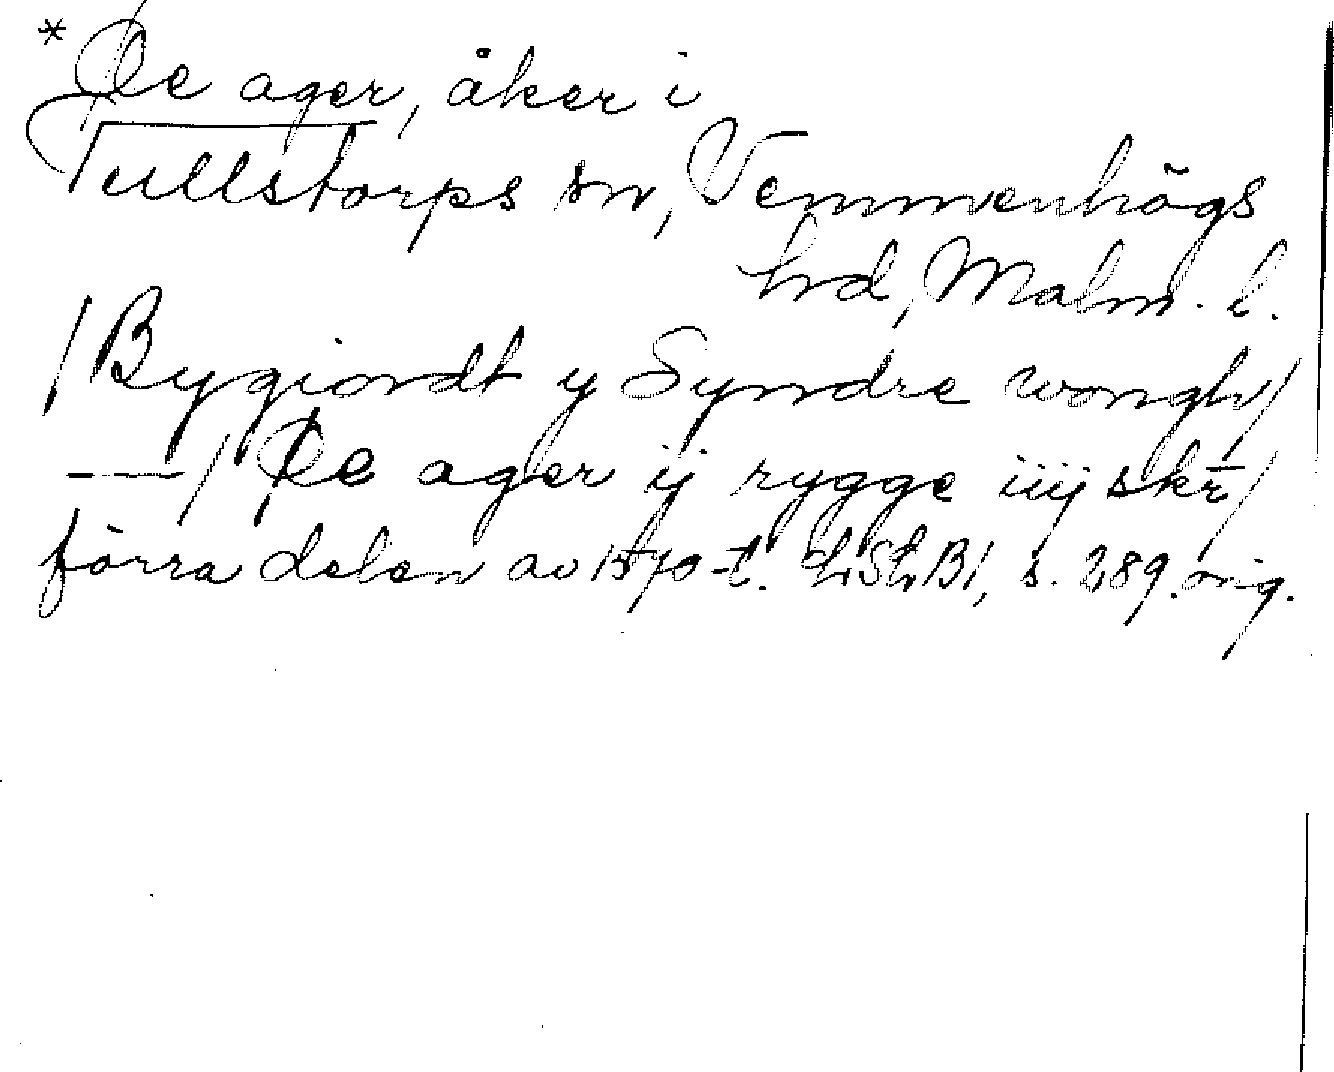 *Øe ager, åker i
Tullstorps sn, Vemmenhögs
hd, Malm. l.
/Bygiordt y Syndre wongh/
---/ Øe ager ij rygge iiij skr̄/
förra delen av 1570-t. LSLB1, s. 289. orig.